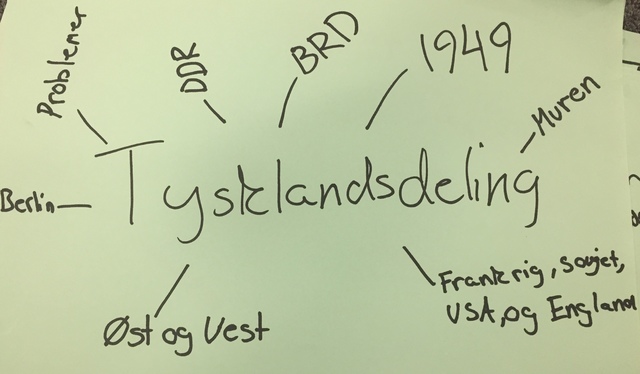 Problemer
DDR
BRD
1949
Muren
Tysklandsdeling
Berlin
Øst og Vest
Frankrig, Sovjet,
USA, og England